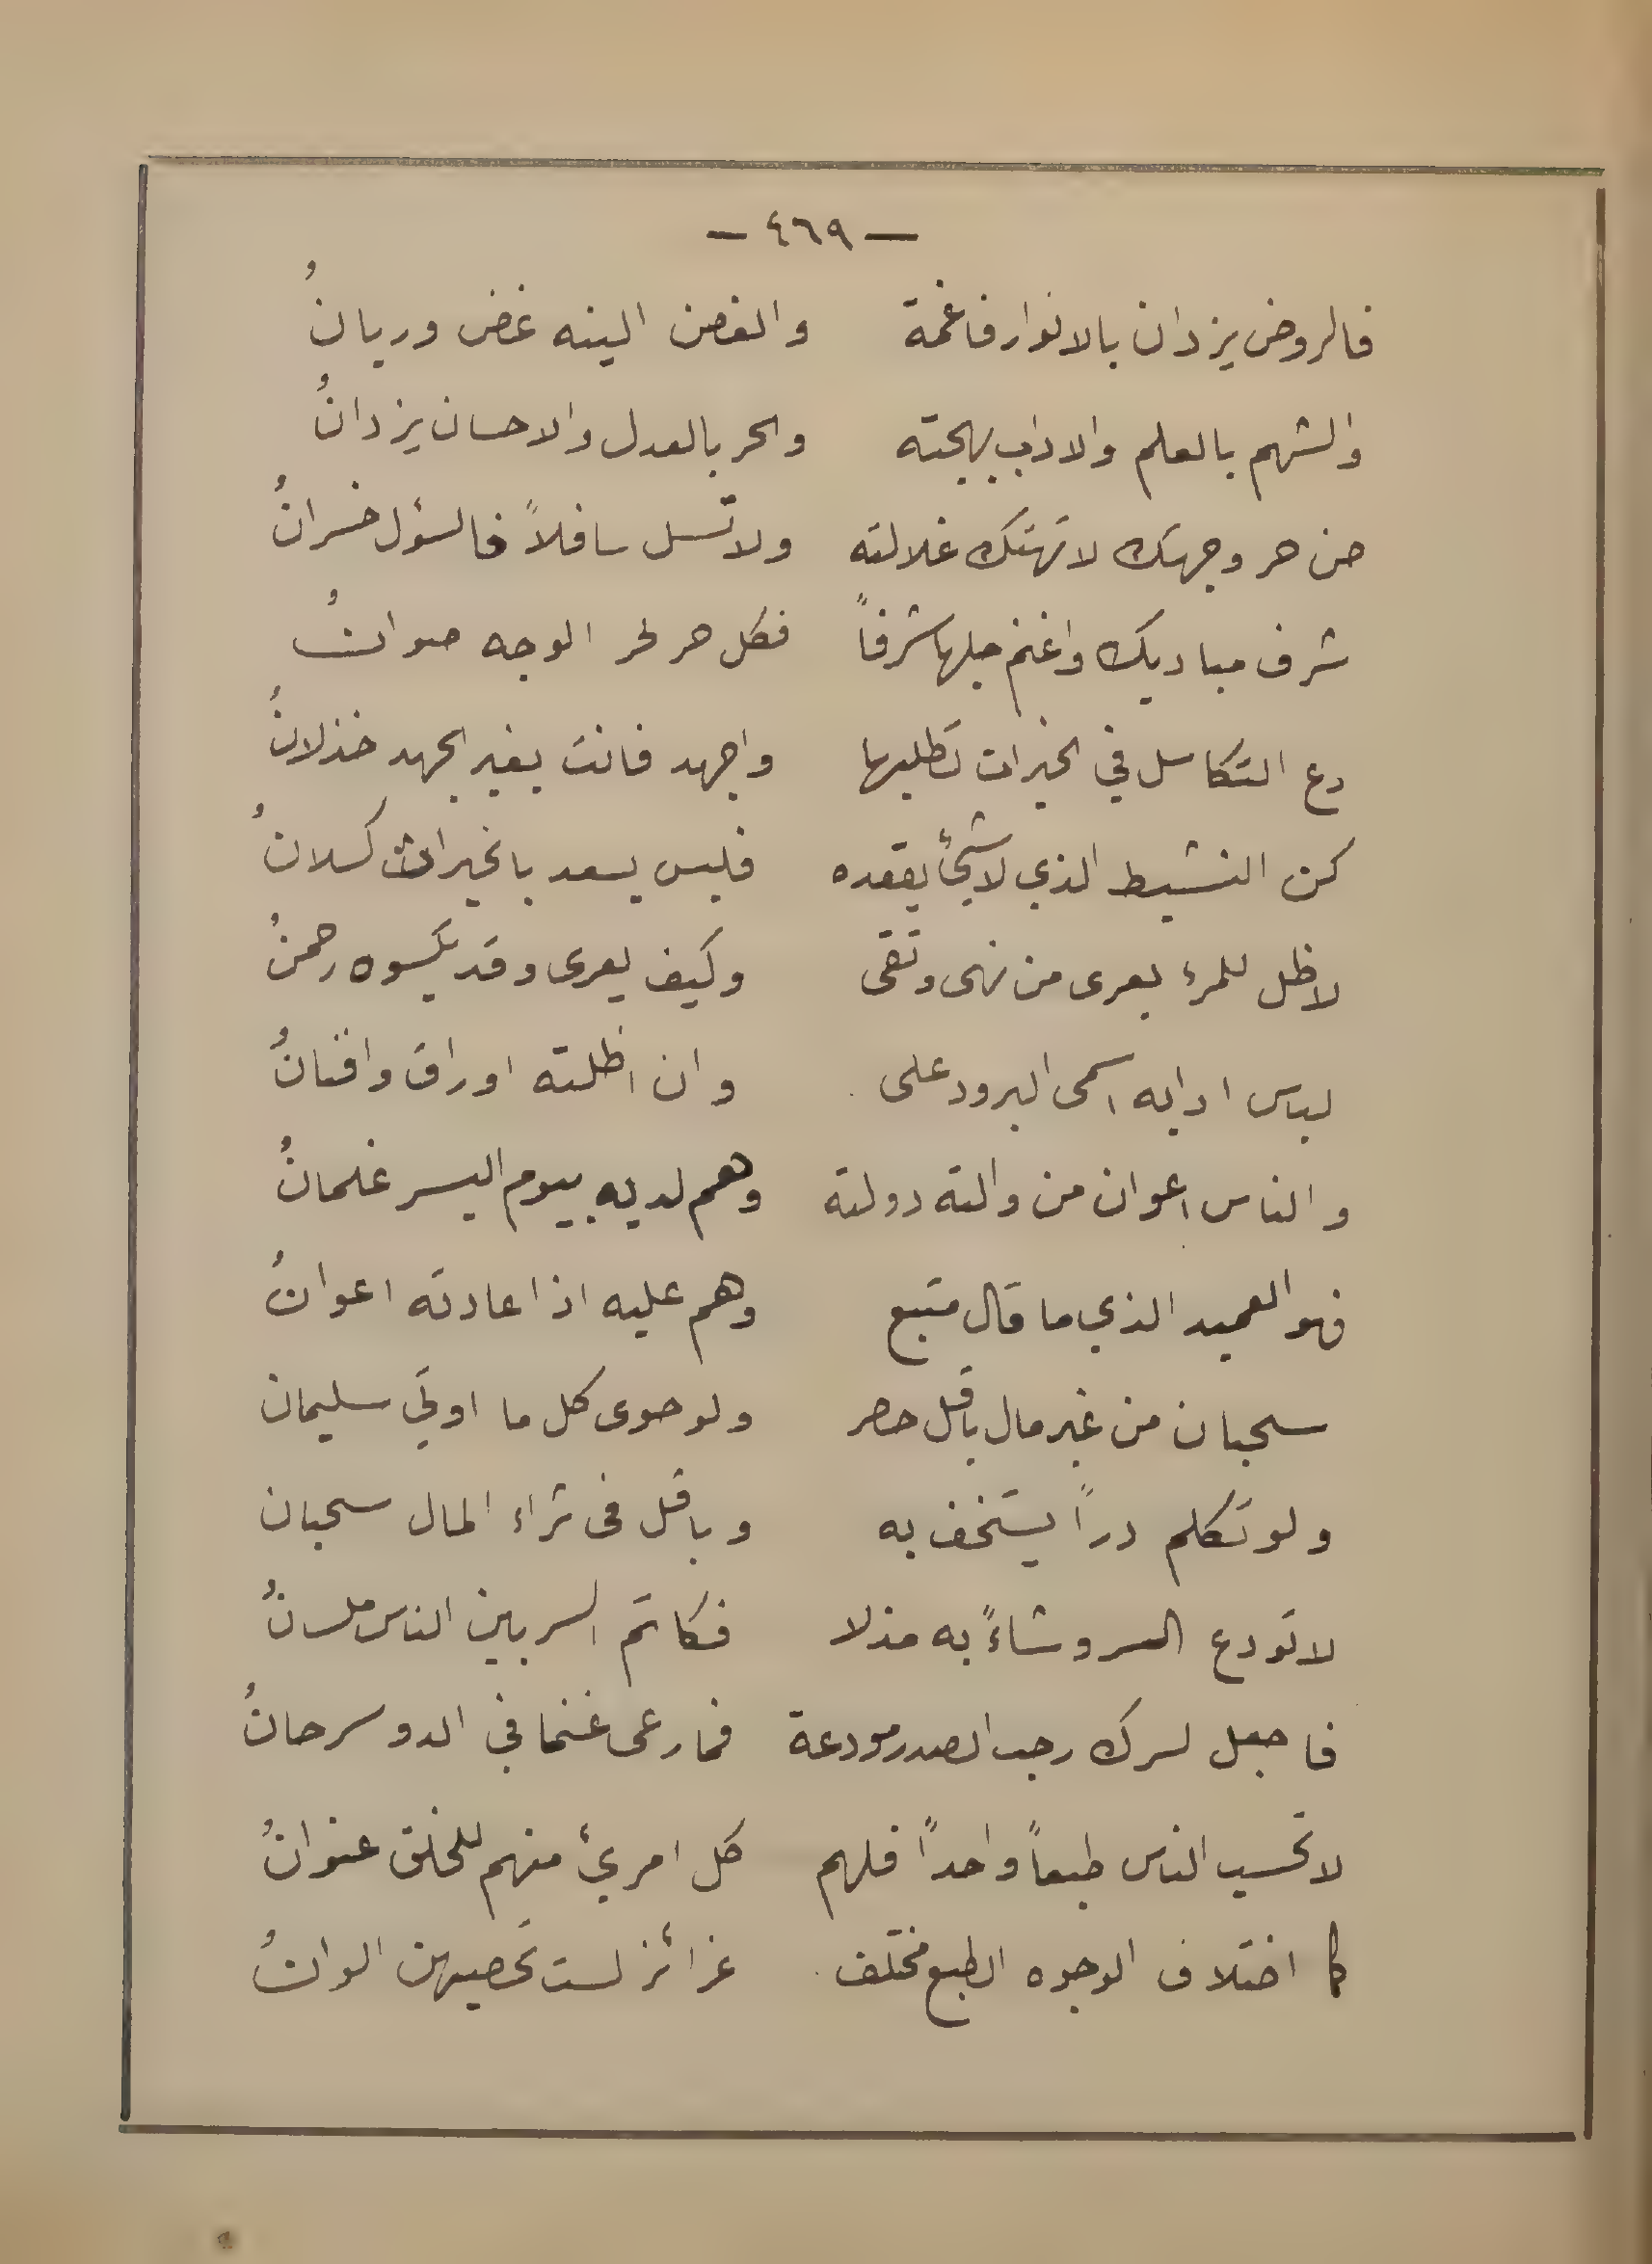 — ٤٦٩ —
فالروض يزدان بالانوار فاغمة والغصن الينه غض وريانُ
والشهم بالعلم والاداب بهجته والحر بالعدل والاحسان يزدانُ
صن حر وجهك لا تهتك غلالته ولا تسل سافلاً فالسؤل خسرانُ
شرف مباديك واغنم جلها شرفاً فكل حر لحر الوجه صوانُ
دع التكاسل في الخيرات تطلبها واجهد فانت بغير الجهد خذلانُ
كن النشيط الذي لا شيءٌ يقعده فليس يسعد بالخيرات كسلانُ
لا ظل للمرء يعرى من نهى وتقى وكيف يعرى وقد يكسوه رحمنُ
لباس ادابه اسمى البرود على وان اظلته اوراق وافنانُ
والناس اعوان من والته دولته وهم لديه بيوم اليسر غلمانُ
فهو العميد الذي ما قال متبع وهم عليه اذا عادته اعوانُ
سحبان من غير مال باقل حصر ولو حوى كل ما اوتي سليمان
ولو تكلم دراً يستخف به وباقل في ثراء المال سحبان
لا تودع السر وشاءً به مذلا فكاتم السر بين الناس ملسانُ
فاجعل لسرك رحب الصدر مودعة فما رعى غنما في الدو سرحانُ
لا تحسب الناس طبعاً واحداً فلهم كل امريءٌ منهم للخلق عنوانُ
كما اختلاف الوجوه الطبع مختلف غرائز لست تحصيهن الوانُ